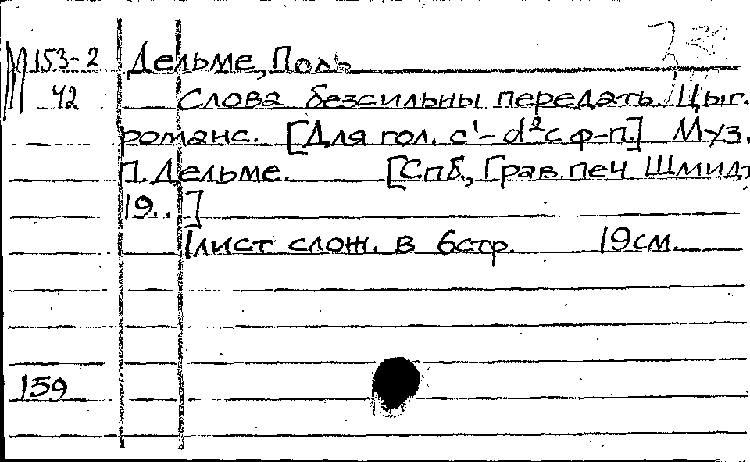 М 153-2 Дельме, Поль
42 Слова безсильны передать. Цыг.
романс. [Для гол. c¹-d² с ф-п.] Муз.
П. Дельме. [Спб., Грав. печ. Шмидт,
19..]
1 лист слож. в 6 стр. 19 см.
159